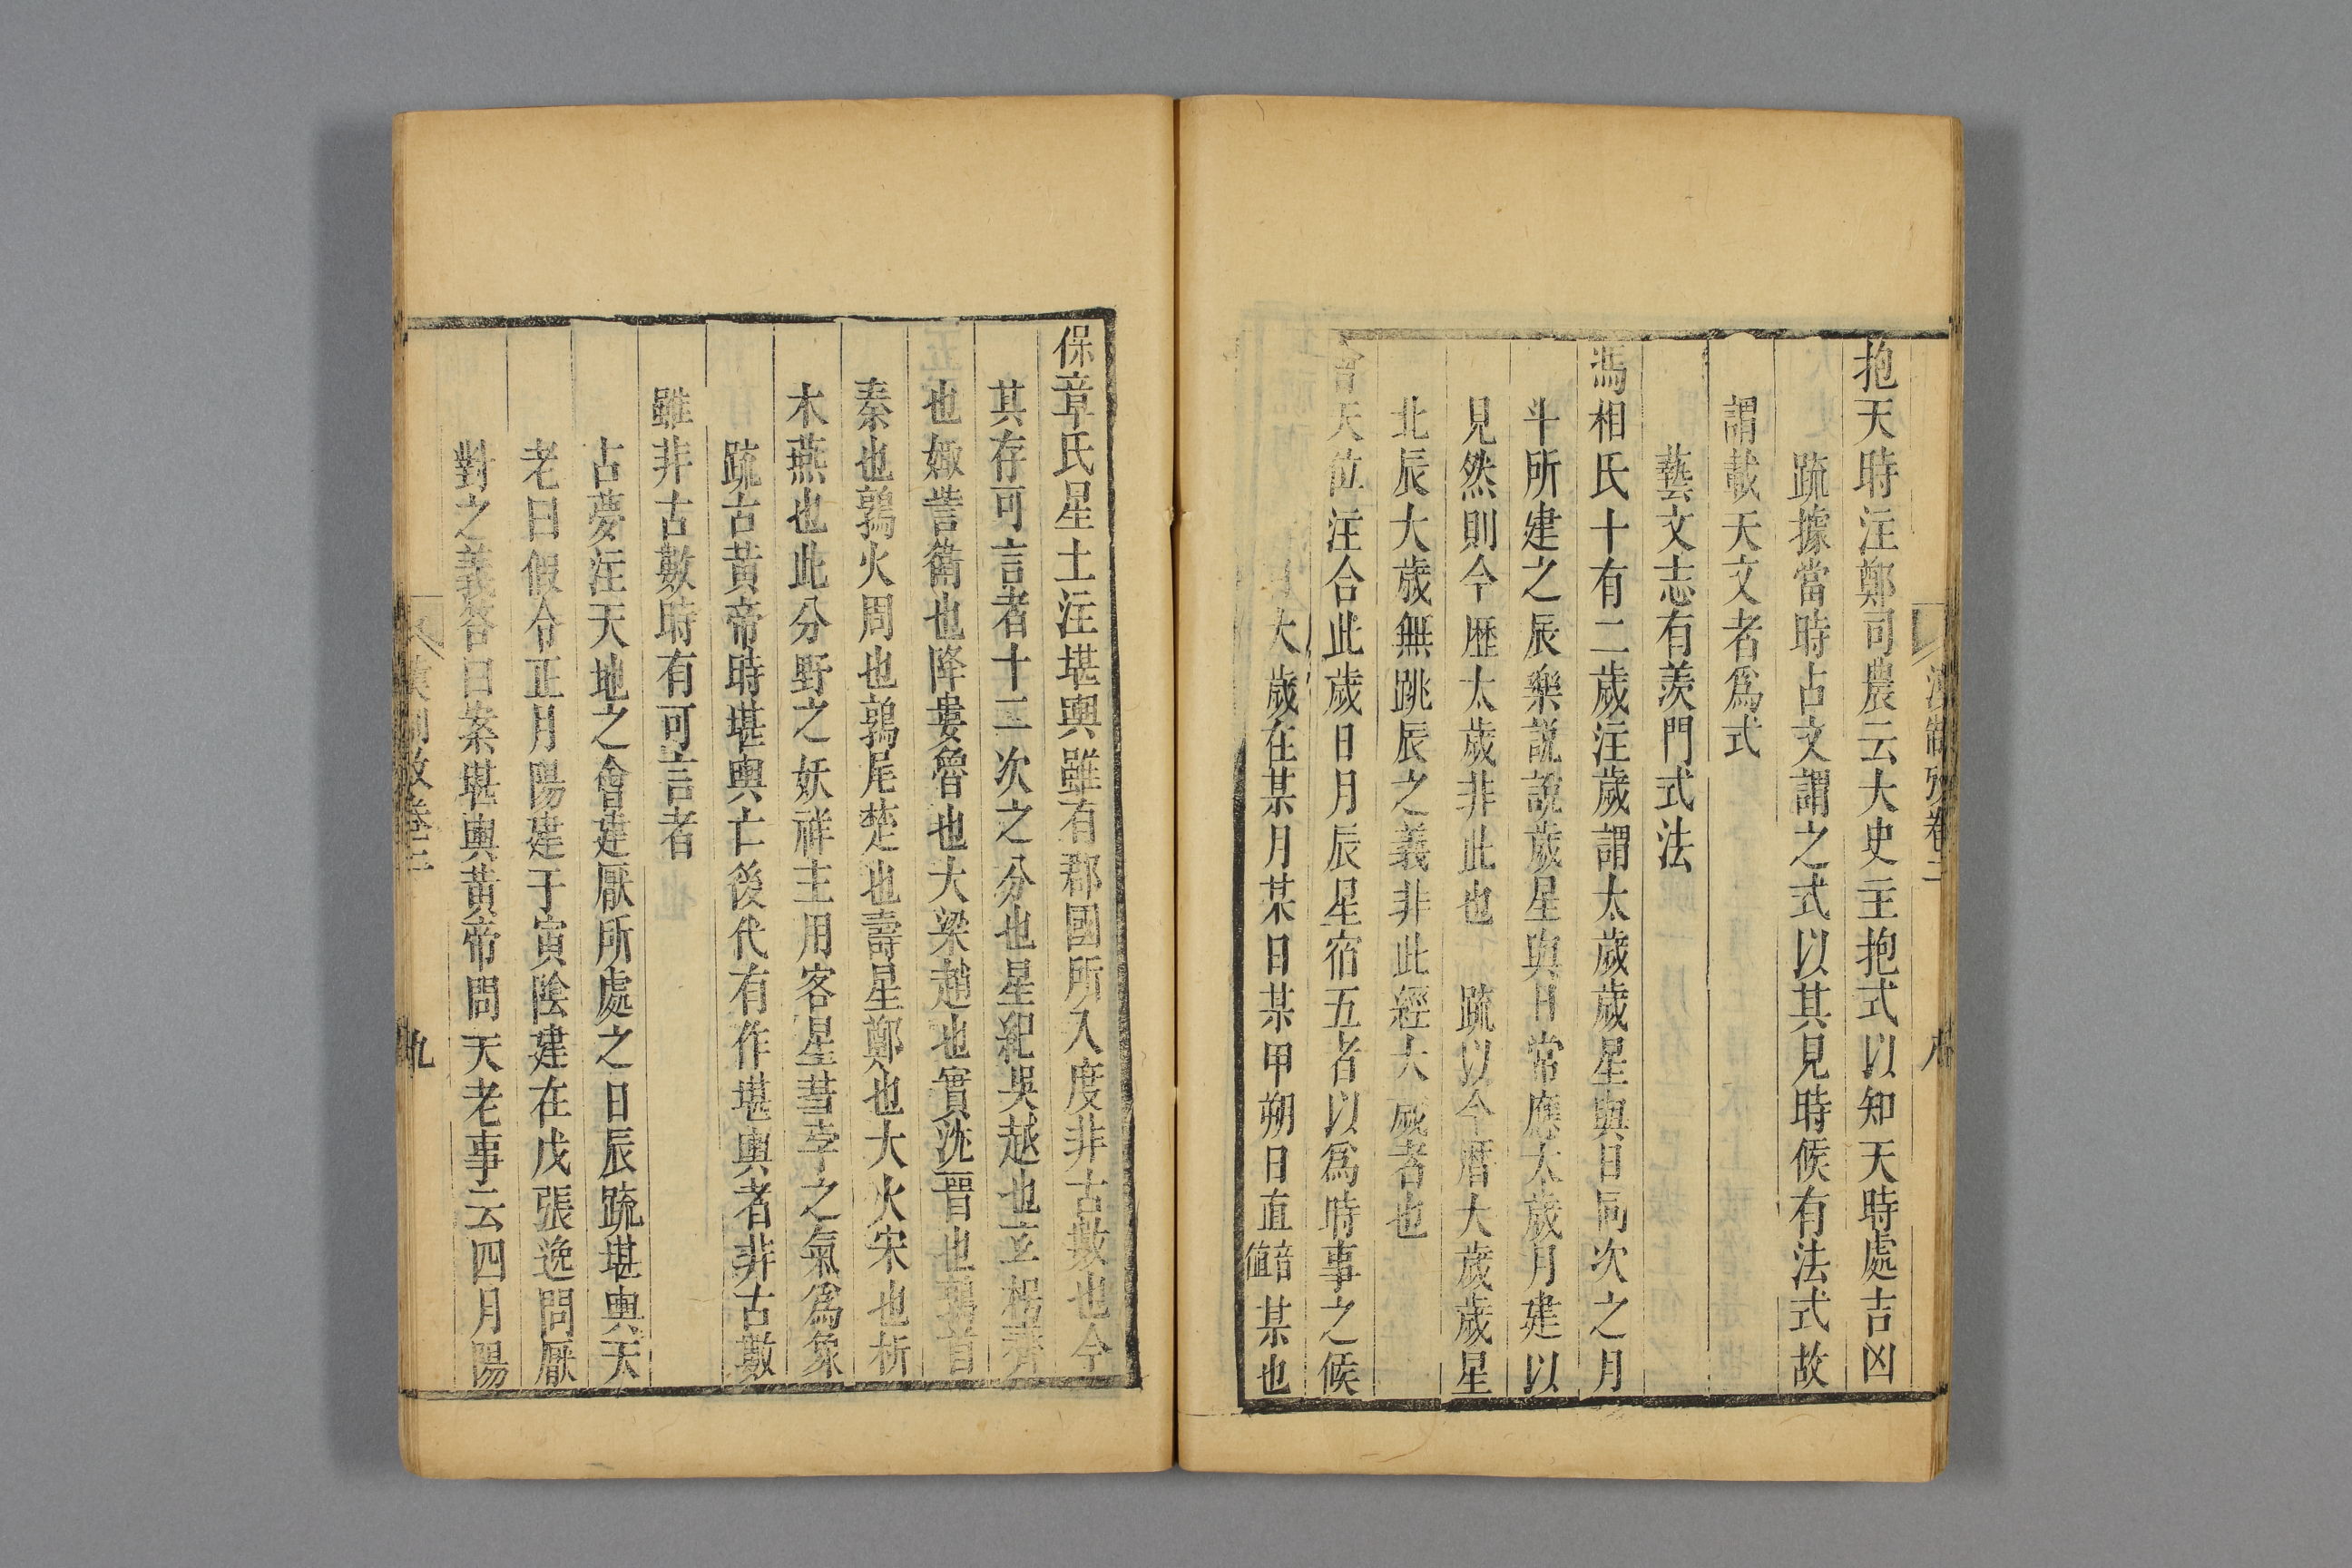 漢制攷卷二
八
抱天時注鄭司農云大史主抱式以知天時處吉凶
疏據當時占文謂之式以其見時候有法式故
謂載天文者爲式
藝文志有羨門式法
馮相氏十有二歲注歲謂太歲歲星與日同次之月
斗所建之辰樂說說歲星與日常應太歲月建以
見然則今歷太歲非此也 疏以今曆大歲歲星
北辰大歲無跳辰之義非此經大歲者也
會天位注合此歲日月辰星宿五者以爲時事之候
大歲在某月某日某甲朔日直音值某也
保章氏星土注堪輿雖有郡國所入度非古數也今
其存可言者十二次之分也星紀吳越也玄枵齊
也娵訾衞也降婁魯也大梁趙也實沈晉也鶉首
秦也鶉火周也鶉尾楚也壽星鄭也大火宋也析
木燕也此分野之妖祥主用客星彗孛之氣爲象
疏古黃帝時堪輿亡後代有作堪輿者非古數
雖非古數時有可言者
占夢注天地之會建厭所處之日辰疏堪輿天
老曰假令正月陽建于寅陰建在戌張逸問厭
對之義答曰案堪輿黃帝問天老事云四月陽
漢制攷卷二
九